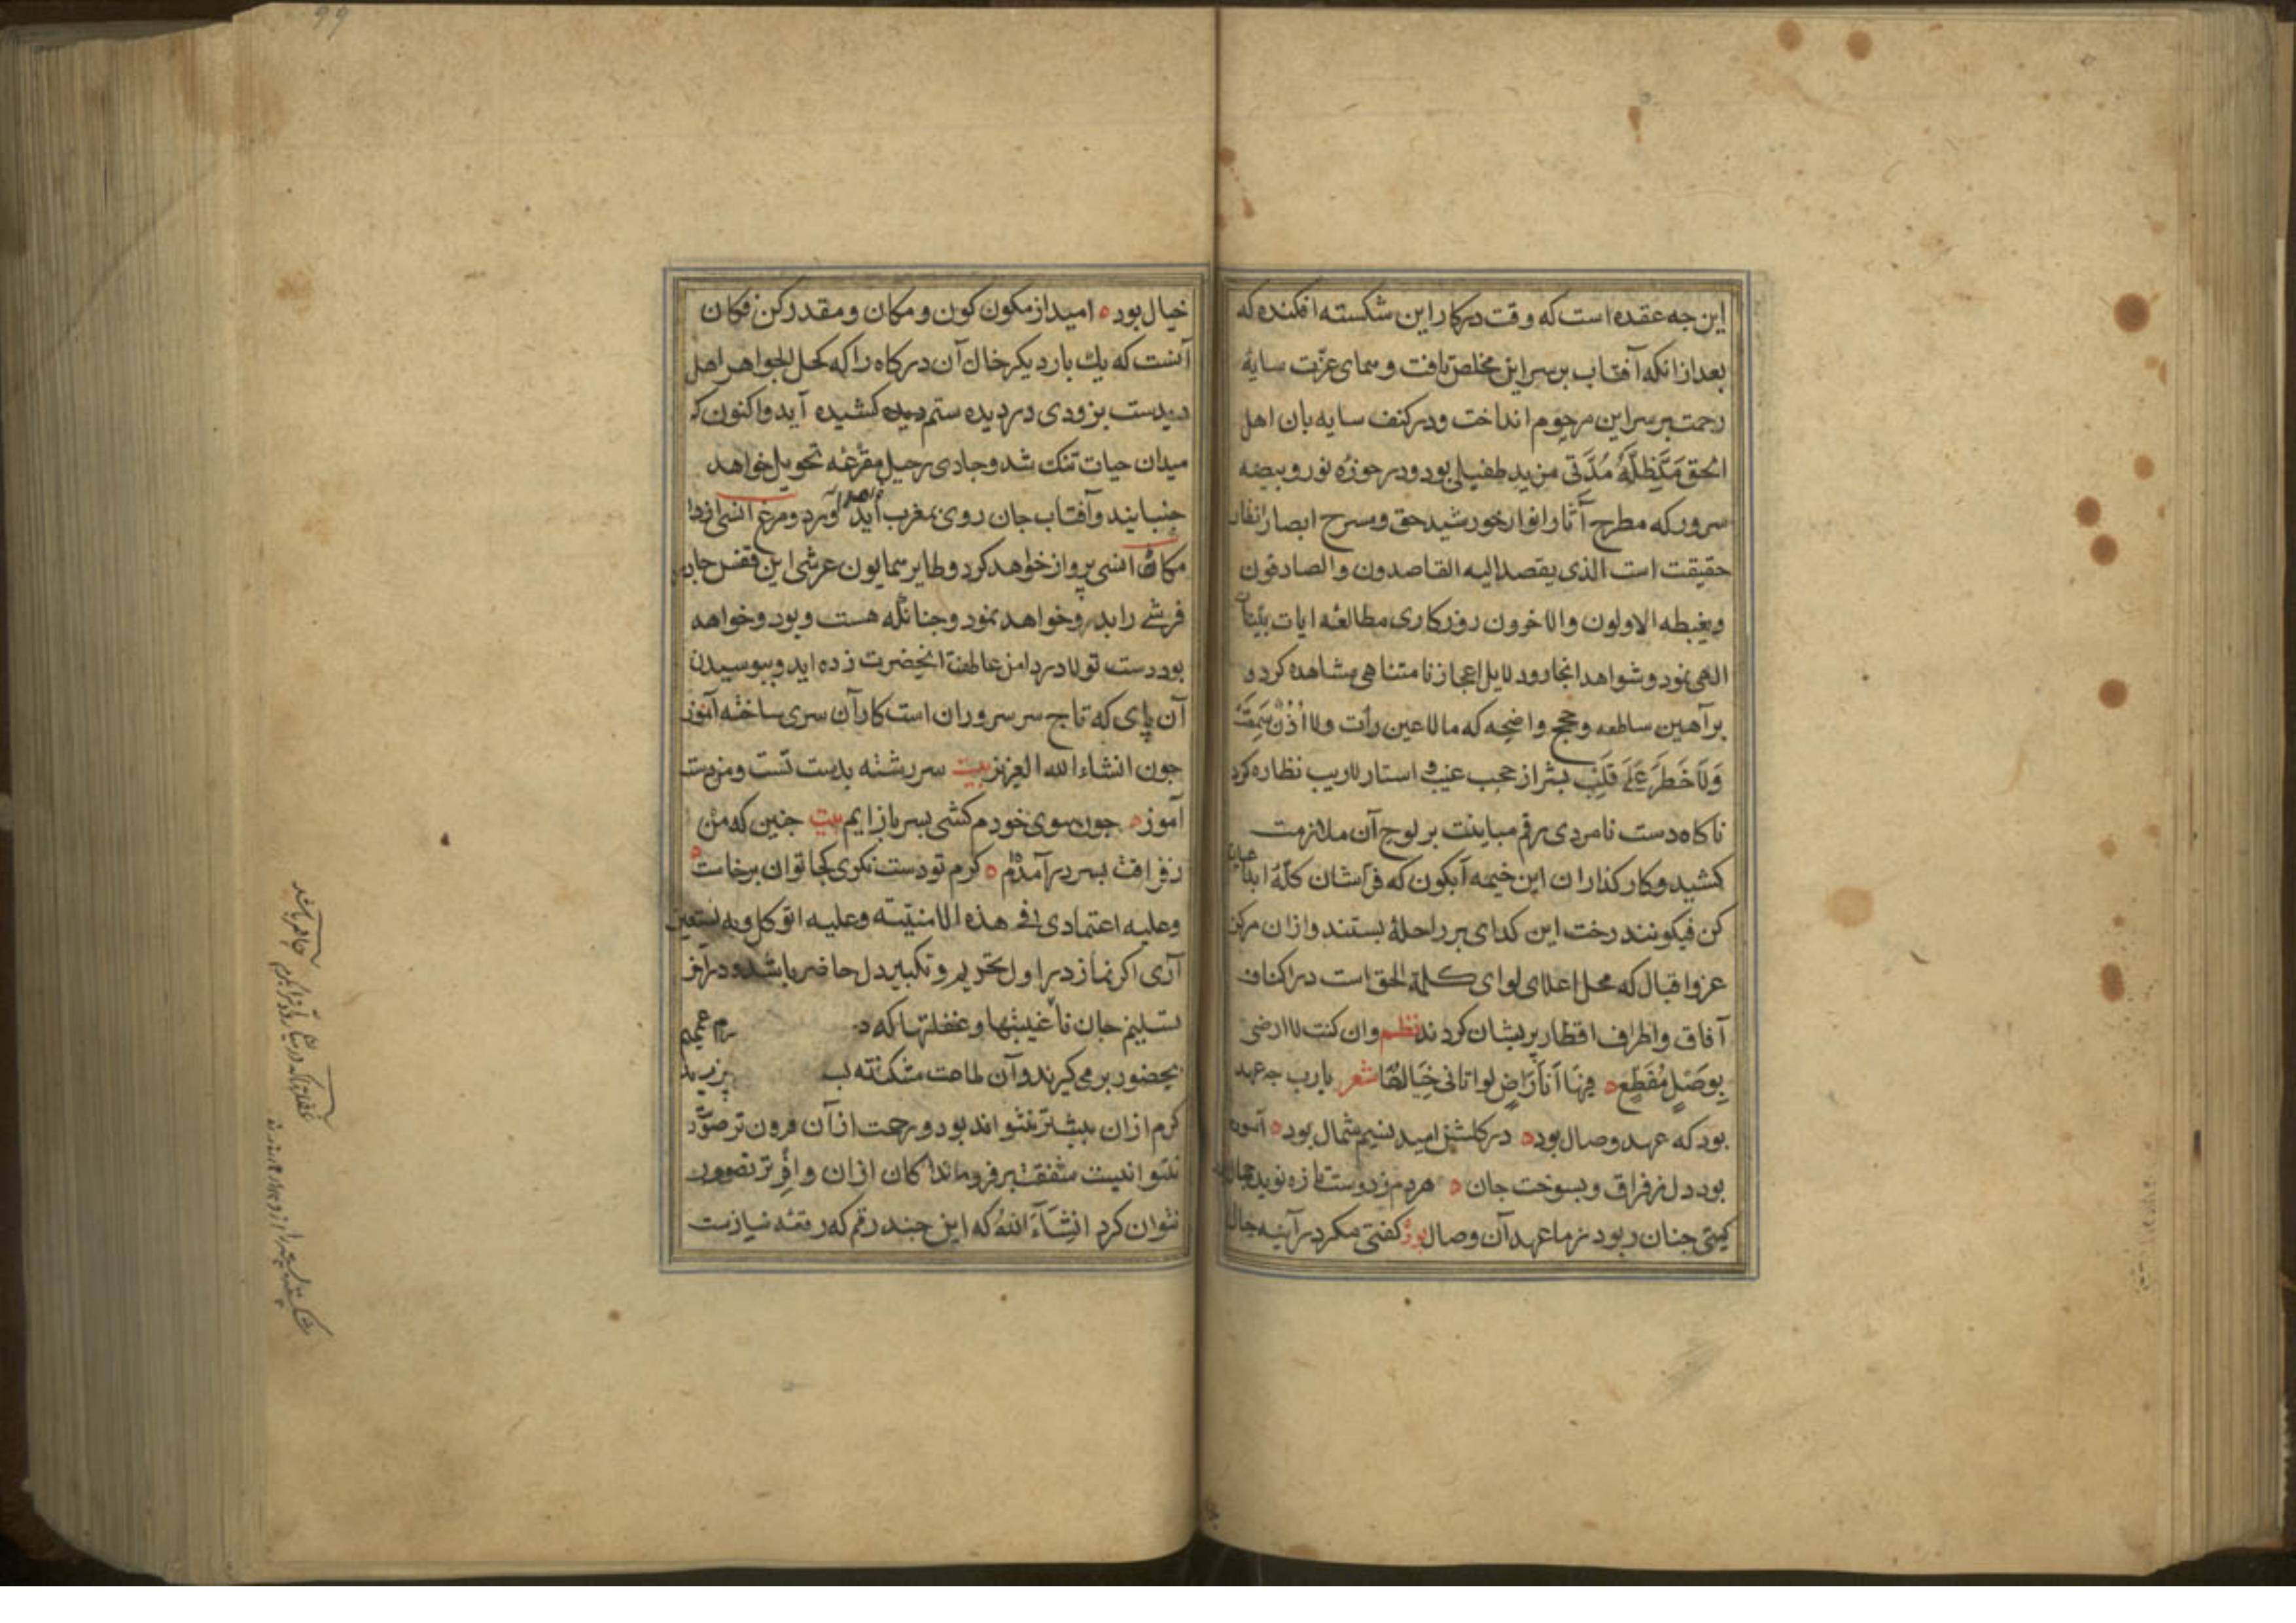 این جه عقده است که وقت درکار این شکسته افکنده که
بعد از انکه آفتاب بر سر این مخلص تافت و سمای عزّت سایهٔ
رحمت بر سر این مرحوم انداخت ودر کنف سایه بان اهل
الحق مدّ ظلّهٔ مُدّتی مزید طفیلی بود ودر حوزهٔ نور وبیضه
سرور که مطرح آثار انوار خورشید حق ومسرح ابصار انظار
حقیقت است الذی یقصد الیه القاصدون والصادقون
ویغبطه الاولون والاخرون روزکاری مطالعهٔ ایات بیّنات
الهی نمود وشواهد انجا رود لایل اعجاز نامتناهی مشاهده کرد و
برآهین ساطعه و حجج واضحه که مالا عین رأت ولا اُذُنٌ سَمِعَتْ
وَلَا خَطَرَ عَلَی قَلْبِ بشر از حجب غیب و استار لاریب نظاره کرد
ناکاه دست نامردی رقم مباینت بر لوح آن ملازمت
کشید وکارکذاران این خیمه آبکون که فرّاشان کلّهٔ ابداع
کن فیکونند رخت این کدای بر راحلهٔ بستند وازان مرکز
عز واقبال که محل اعلای لوای کلمة الحق است در اکناف
آفاق واطراف اقطار پریشان کردند نظم وان کنت لا ارضی
بِوَصْلٍ مُقَطَّعٍ ه فها اَنَا رَاضٍ لو اتانی خَیَالُهَا شعر یارب جه عهد
بود که عهد وصال بود ه در کلشن امید نسیم شمال بود ه آسوده
بود دل ز فراق وبسوخت جان ه هر دم ز دوست تازه نوید
کیتی جنان ربود ز ما عهد آن وصال بود کفتی مکر در آینه جمال
خیال بود ه امید از مکون کون و مکان و مقدر کن فکان
آنست که یك بار دیکر خاك آن درکاه را که کحل الجواهر اهل
دیدست بزودی در دیده ستم دیده کشیده آید واکنون که
میدان حیات تنك شد وجادی رحیل مقرعه تحویل خواهد
جنبانید وآفتاب جان روی بمغرب ابد آورد ومرغ انسی
مکان انسی پرواز خواهد کرد وطایر همایون عرشی این قفس
فرشی را بدرود خواهد نمود وجنانکه هست وبود وخواهد
بود دست تولا در دامن عاطفت انحضرت زده اید وببوسیدن
آن پای که تاج سر سروران است کار آن سری ساخته آموز
جون انشاء الله العزیز بیت سر رشته بدست تست ومن مست
آموز ه جون سوی خودم کشی بسر باز ایم بیت جنین که من
ز فراقت بسر در آمدم ه کرم تو دست نکیری کجا توان برخاست ه
وعلیه اعتمادی فی هذه الامنیّة وعلیه اتوکل وبه نستعین
آری اکر نماز در اول تحریم وتکبیر دل حاضر باشد ودر آخر
بتسلیم جان نا غیبتها وغفلتها که د رم عمیم
بحضور بر می کیرند وآن طاعت شکسته ب
کرم ازان بیشتر نتواند بود ورحمت از آن فزون تر صوّر
نتوانیست شفقت بر فرو ماندکان ازان وافر تر تصوور
نتوان کرد انشاء الله که این جند رقم که رقعه نیازست